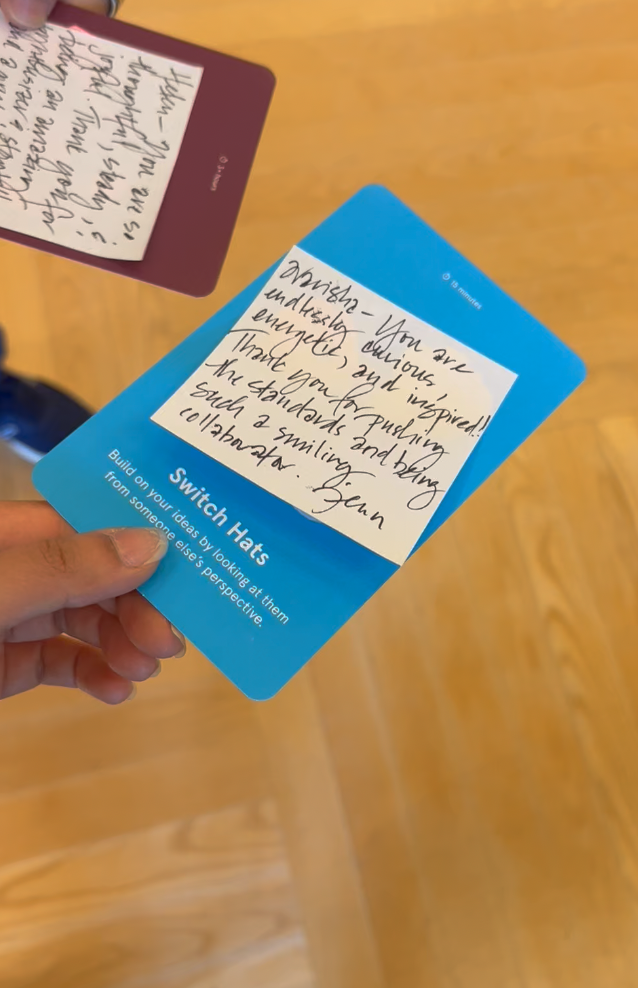 You are so
thoughtful, steady,
Thank you for
being an amazing
3+ hours
15 minutes
You are
endlessly curious,
energetic, and inspired!
Thank you for pushing
the standards and being
such a smiling
collaborator. Jenn
Switch Hats
Build on your ideas by looking at them
from someone else's perspective.